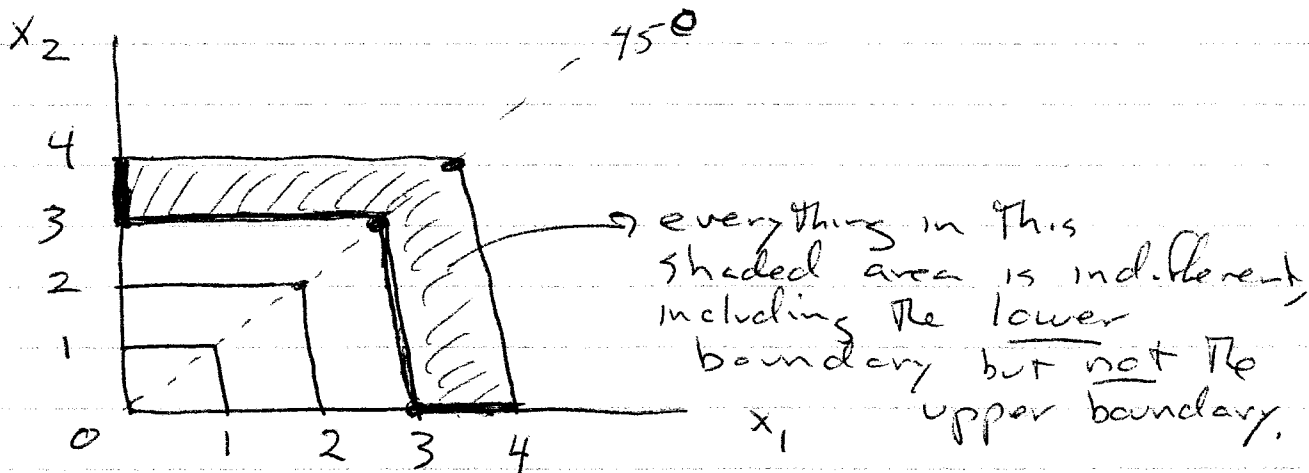 X2
45°
4
3
2
1
0
1
2
3
4
x1
everything in this
shaded area is indifferent,
including the lower
boundary but not the
upper boundary.